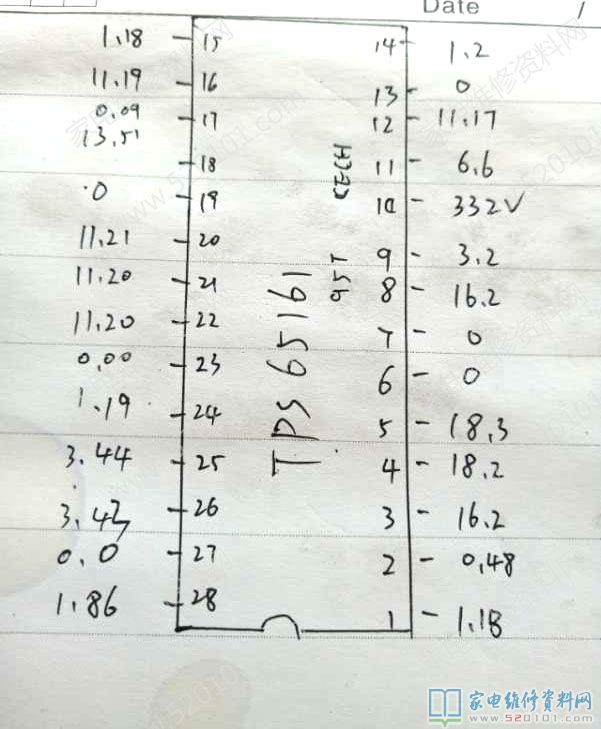 Date /
1.18 - 15 14 - 1.2
11.19 - 16 13 - 0
0.09
13.51 - 17 12 - 11.17
- 18 11 - 6.6
0 - 19 10 - 332V
11.21 - 20 9 - 3.2
11.20 - 21 8 - 16.2
11.20 - 22 7 - 0
0.00 - 23 6 - 0
1.19 - 24 5 - 18.3
3.44 - 25 4 - 18.2
3.43 - 26 3 - 16.2
0.0 - 27 2 - 0.48
1.86 - 28 1 - 1.18
TPS 65161
95T
家电维修资料网
www.520101.com